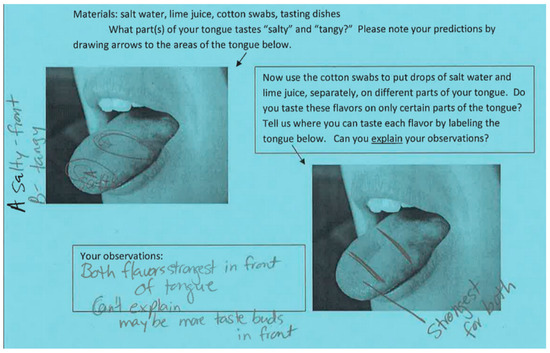 Materials: salt water, lime juice, cotton swabs, tasting dishes
What part(s) of your tongue tastes “salty” and “tangy?” Please note your predictions by
drawing arrows to the areas of the tongue below.
A Salty-front
B- tangy
A
Now use the cotton swabs to put drops of salt water and
lime juice, separately, on different parts of your tongue. Do
you taste these flavors on only certain parts of the tongue?
Tell us where you can taste each flavor by labeling the
tongue below. Can you explain your observations?
Your observations:
Both flavors strongest in front
of tongue
Can't explain
may be more taste buds
in front
Strongest
for both